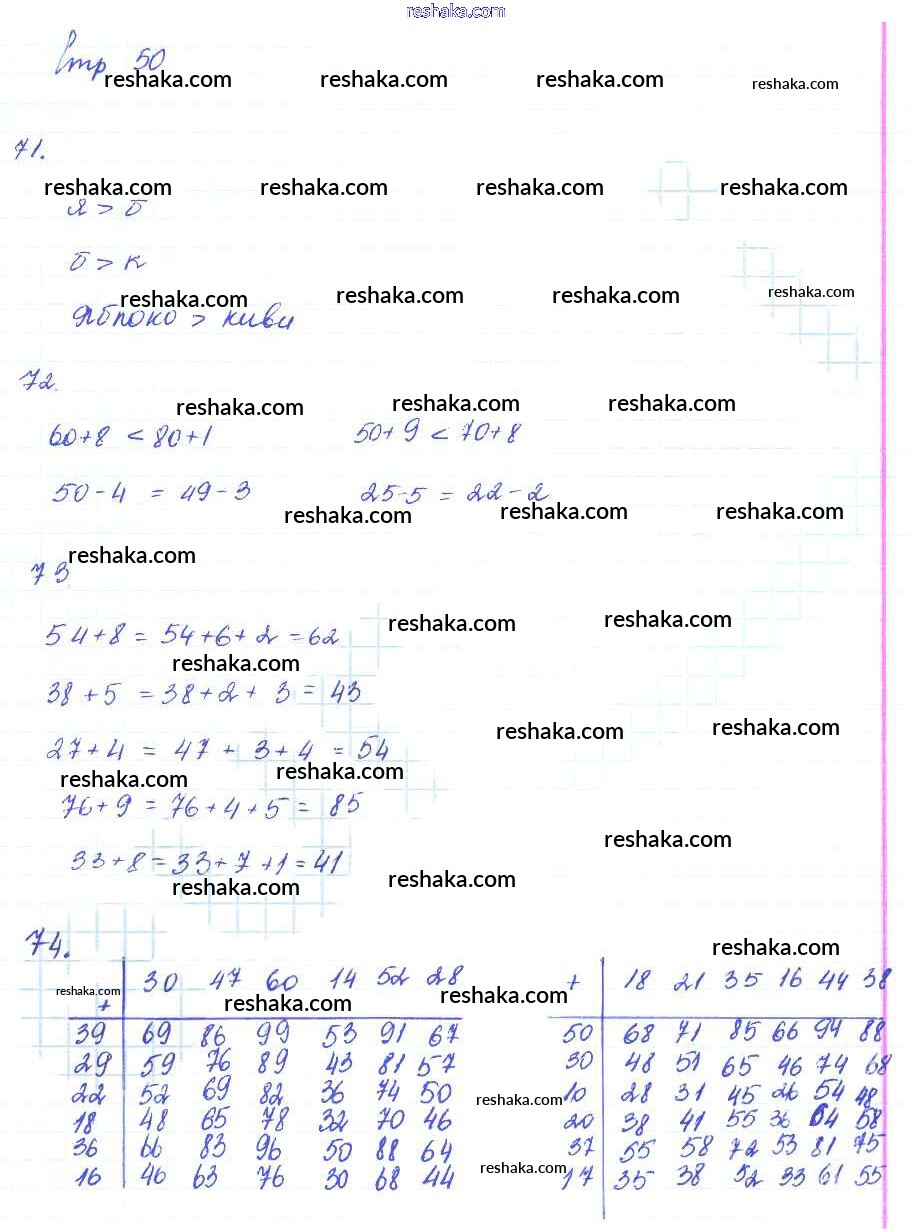 reshaka.com
Стр 50
reshaka.com reshaka.com reshaka.com reshaka.com
71.
reshaka.com reshaka.com reshaka.com reshaka.com
Я > Б
Б > К
reshaka.com reshaka.com reshaka.com reshaka.com
яблоко > киви
72.
reshaka.com reshaka.com reshaka.com
60+8 < 80+1 50+9 < 70+8
50-4 = 49-3 25-5 = 22-2
reshaka.com reshaka.com reshaka.com
reshaka.com
73
54+8 = 54+6+2 = 62
reshaka.com reshaka.com
reshaka.com
38+5 = 38+2+3 = 43
reshaka.com reshaka.com
27+4 = 47+3+4 = 54
reshaka.com reshaka.com
76+9 = 76+4+5 = 85
reshaka.com
33+8 = 33+7+1 = 41
reshaka.com reshaka.com
74.
reshaka.com
+ 30 47 60 14 52 28 + 18 21 35 16 44 38
reshaka.com reshaka.com reshaka.com
39 69 86 99 53 91 67 50 68 71 85 66 94 88
29 59 76 89 43 81 57 30 48 51 65 46 74 68
22 52 69 82 36 74 50 10 28 31 45 26 54 48
reshaka.com
18 48 65 78 32 70 46 20 38 41 55 36 64 58
36 66 83 96 50 88 64 37 55 58 72 53 81 75
reshaka.com
16 46 63 76 30 68 44 17 35 38 52 33 61 55